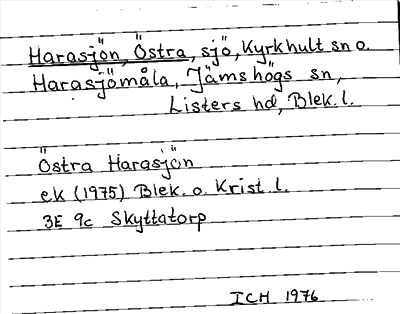 Harasjön, Östra, sjö, Kyrkhult sn o.
Harasjömåla, Jämshögs sn,
Listers hd, Blek. l.
Östra Harasjön
ek (1975) Blek. o. Krist. l.
3E 9c Skyttatorp
ICH 1976